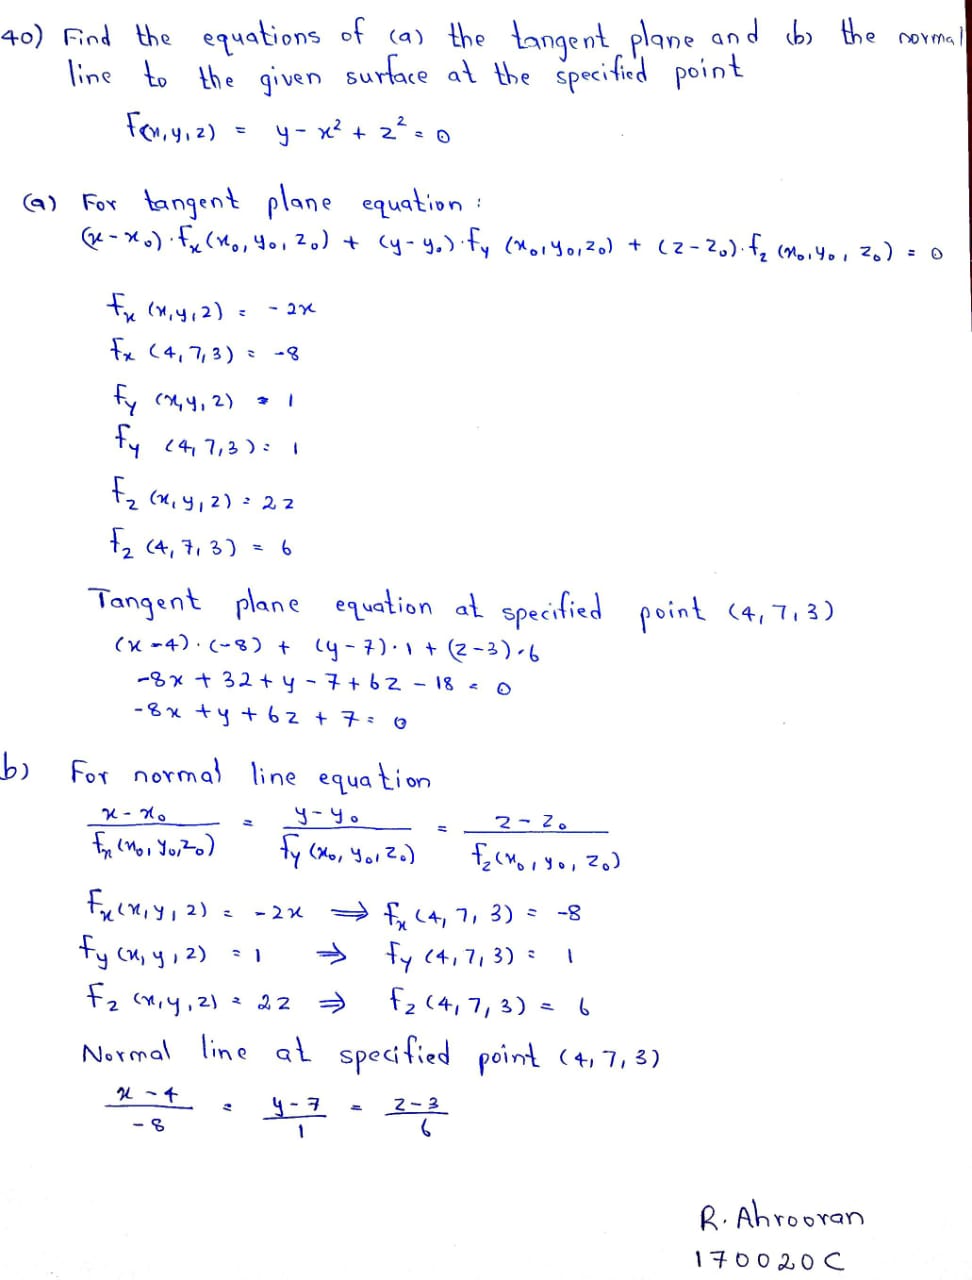 40) Find the equations of (a) the tangent plane and (b) the normal
line to the given surface at the specified point
F(x,y,z) = y - x² + z² = 0
(a) For tangent plane equation :
(x-x₀)·fₓ(x₀,y₀,z₀) + (y-y₀)·f_y (x₀,y₀,z₀) + (z-z₀)·f_z (x₀,y₀,z₀) = 0
fₓ (x,y,z) = -2x
fₓ (4,7,3) = -8
f_y (x,y,z) = 1
f_y (4,7,3) = 1
f_z (x,y,z) = 2z
f_z (4,7,3) = 6
Tangent plane equation at specified point (4,7,3)
(x-4)·(-8) + (y-7)·1 + (z-3)·6
-8x + 32 + y - 7 + 6z - 18 = 0
-8x + y + 6z + 7 = 0
b) For normal line equation
(x-x₀)/(fₓ(x₀,y₀,z₀)) = (y-y₀)/(f_y(x₀,y₀,z₀)) = (z-z₀)/(f_z(x₀,y₀,z₀))
fₓ(x,y,z) = -2x ⇒ fₓ(4,7,3) = -8
f_y(x,y,z) = 1 ⇒ f_y(4,7,3) = 1
f_z(x,y,z) = 2z ⇒ f_z(4,7,3) = 6
Normal line at specified point (4,7,3)
(x-4)/-8 = (y-7)/1 = (z-3)/6
R. Ahrooran
170020C